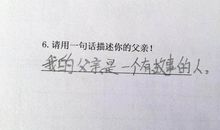 6. 请用一句话描述你的父亲!
我的父亲是一个有故事的人。